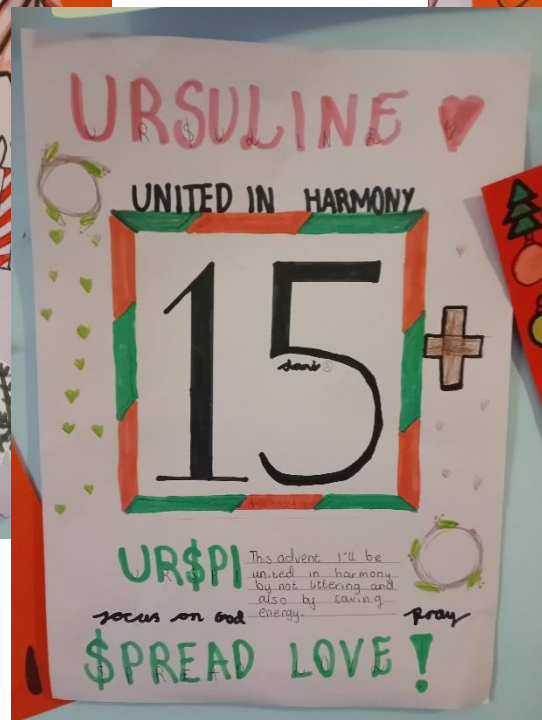 URSULINE
UNITED IN HARMONY
15
UR$PI
This advent I'll be
united in harmony
by not littering and
also by saving
energy.
focus on God
pray
$PREAD LOVE!